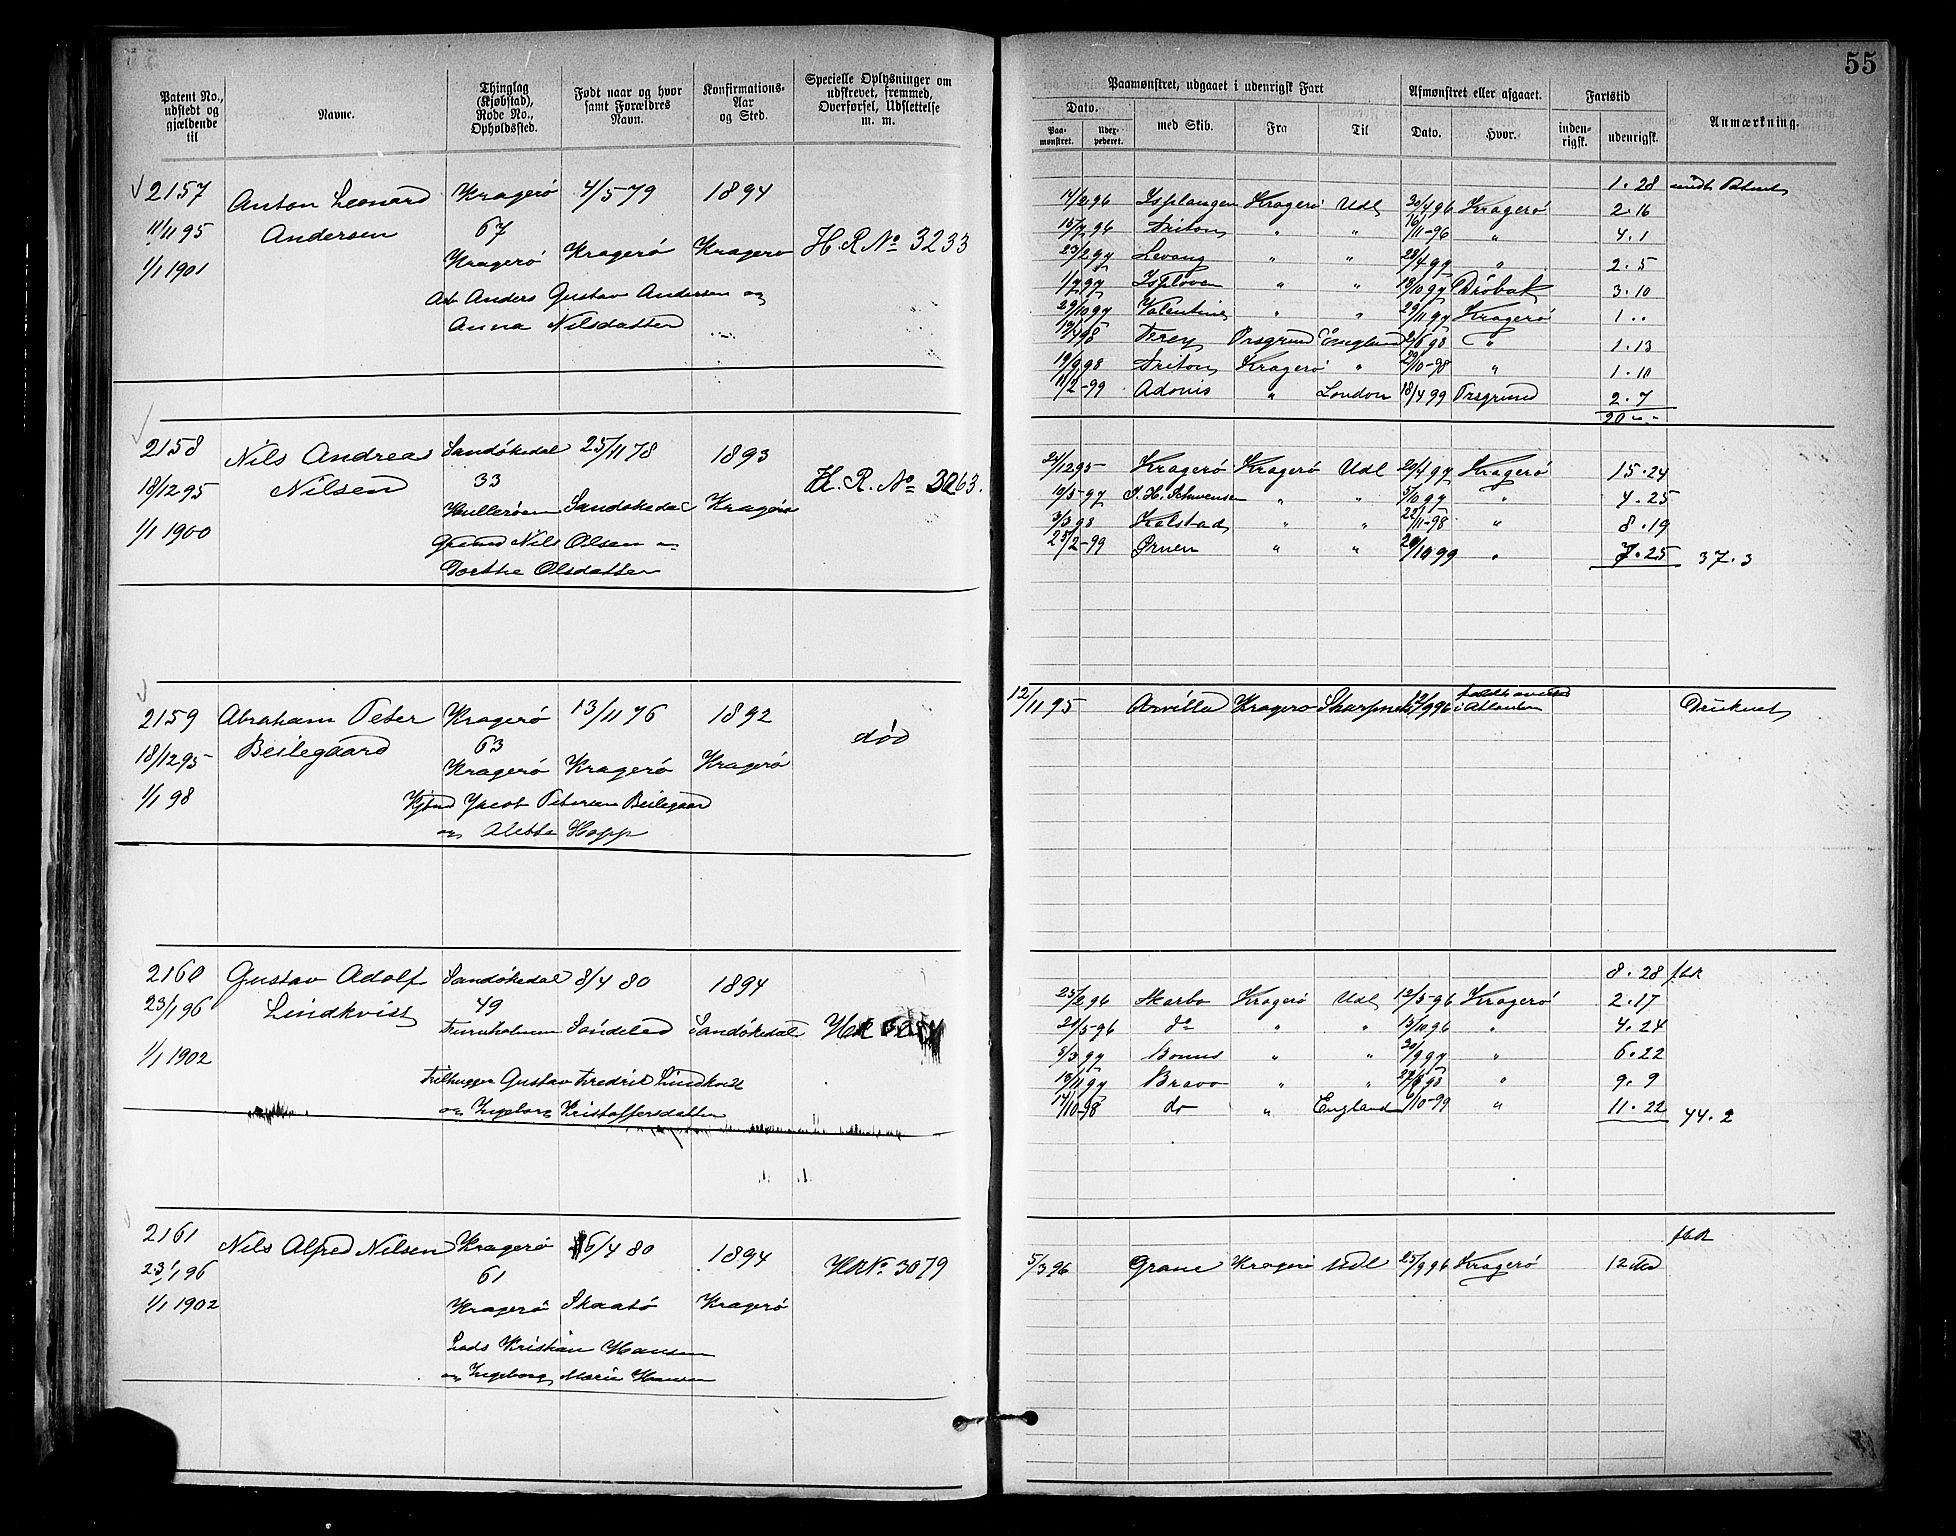 55
Patent No., udstedt og gjældende til
Navne.
Thinglag (Kjøbstad), Rode No., Opholdssted.
Født naar og hvor samt Forældres Navn.
Konfirmations-Aar og Sted.
Specielle Oplysninger om udskrevet, fremmed, Overførsel, Udslettelse m. m.
Paamønstret, udgaaet i udenrigsk Fart
Afmønstret eller afgaaet.
Fartstid
Anmærkning.
Dato.
Paa-mønstret.
med Skib.
Fra
Til
Dato.
Hvor.
inden-rigsk.
udenrigsk.
2157 Anton Leonard Kragerø 4/5 79 1894
Andersen 67
11/11 95 Kragerø Kragerø Kragerø H. R. No 3233
1/1 1901
Anders Gustav Andersen og
Anna Nilsdatter
1. 28
17/2 96 Isplangen Kragerø Udl 30/4 96 Kragerø 2. 16
15/7 96 Triton " " 16/11-96 " 4. 1
23/2 97 Levang " " 28/4 97 " 2. 5
1/7 97 Isfloven " " 10/10 97 Drøbak 3. 10
29/10 97 Valentine " " 29/11 97 Kragerø 1 ..
Frey Porsgrund England " 1. 13
19/9 98 Triton Kragerø " 29/10-98 " 1. 10
11/2-99 Adonis " London 18/4 99 Porsgrund 2. 7
20 - -
2158 Nils Andreas Sandøkedal 25/11 78 1893
Nilsen 33
18/12 95 Sandøkedal Kragerø H. R. No 3263.
1/1 1900 Nils Olsen og
Dorthe Olsdatter
24/12 95 Kragerø Kragerø Udl 20/4 97 Kragerø 15. 24
10/5-97 J. H. Schwensen " " 5/10 97 " 4. 25
3/3 98 Kalstad " " 22/11-98 " 8. 19
25/2-99 Ørnen " " 20/10 99 " 7. 25 37. 3
2159 Abraham Peter Kragerø 13/11 76 1892
Beilegaard 63 død
18/12 95 Kragerø Kragerø Kragerø
1/1 98 Jacob Petersen Beilegaard
og Alette Hopp
12/11 95 Kragerø i Atlanten Druknet
2160 Gustav Adolf Sandøkedal 8/4 80 1894
Lindkvist 49
23/1 96 Furuholmen Sandøkedal
1/1 1902
Gustav Fredrik Lindkvist
og Ingeborg Kristoffersdatter
8. 28 fbk
25/2 96 Skarbo Kragerø Udl 12/5-96 Kragerø 2. 17
21/5-96 do " " 15/10 96 " 4. 24
8/3 97 Bonus " " 30/9 97 " 6. 22
13/11 97 Bravo " " " 9. 9
17/10-98 do " England 9/10-99 " 11. 22 44. 2
2161 Nils Alfred Nilsen Kragerø 6/4 80 1894
23/1 96 61 HR No. 3079
1/1 1902 Kragerø Skaatø Kragerø
Lods Kristian Hansen
og Ingeborg Marie Hansen
fbk
5/3 96 Grane Kragerø Udl 25/9 96 Kragerø 12 Md